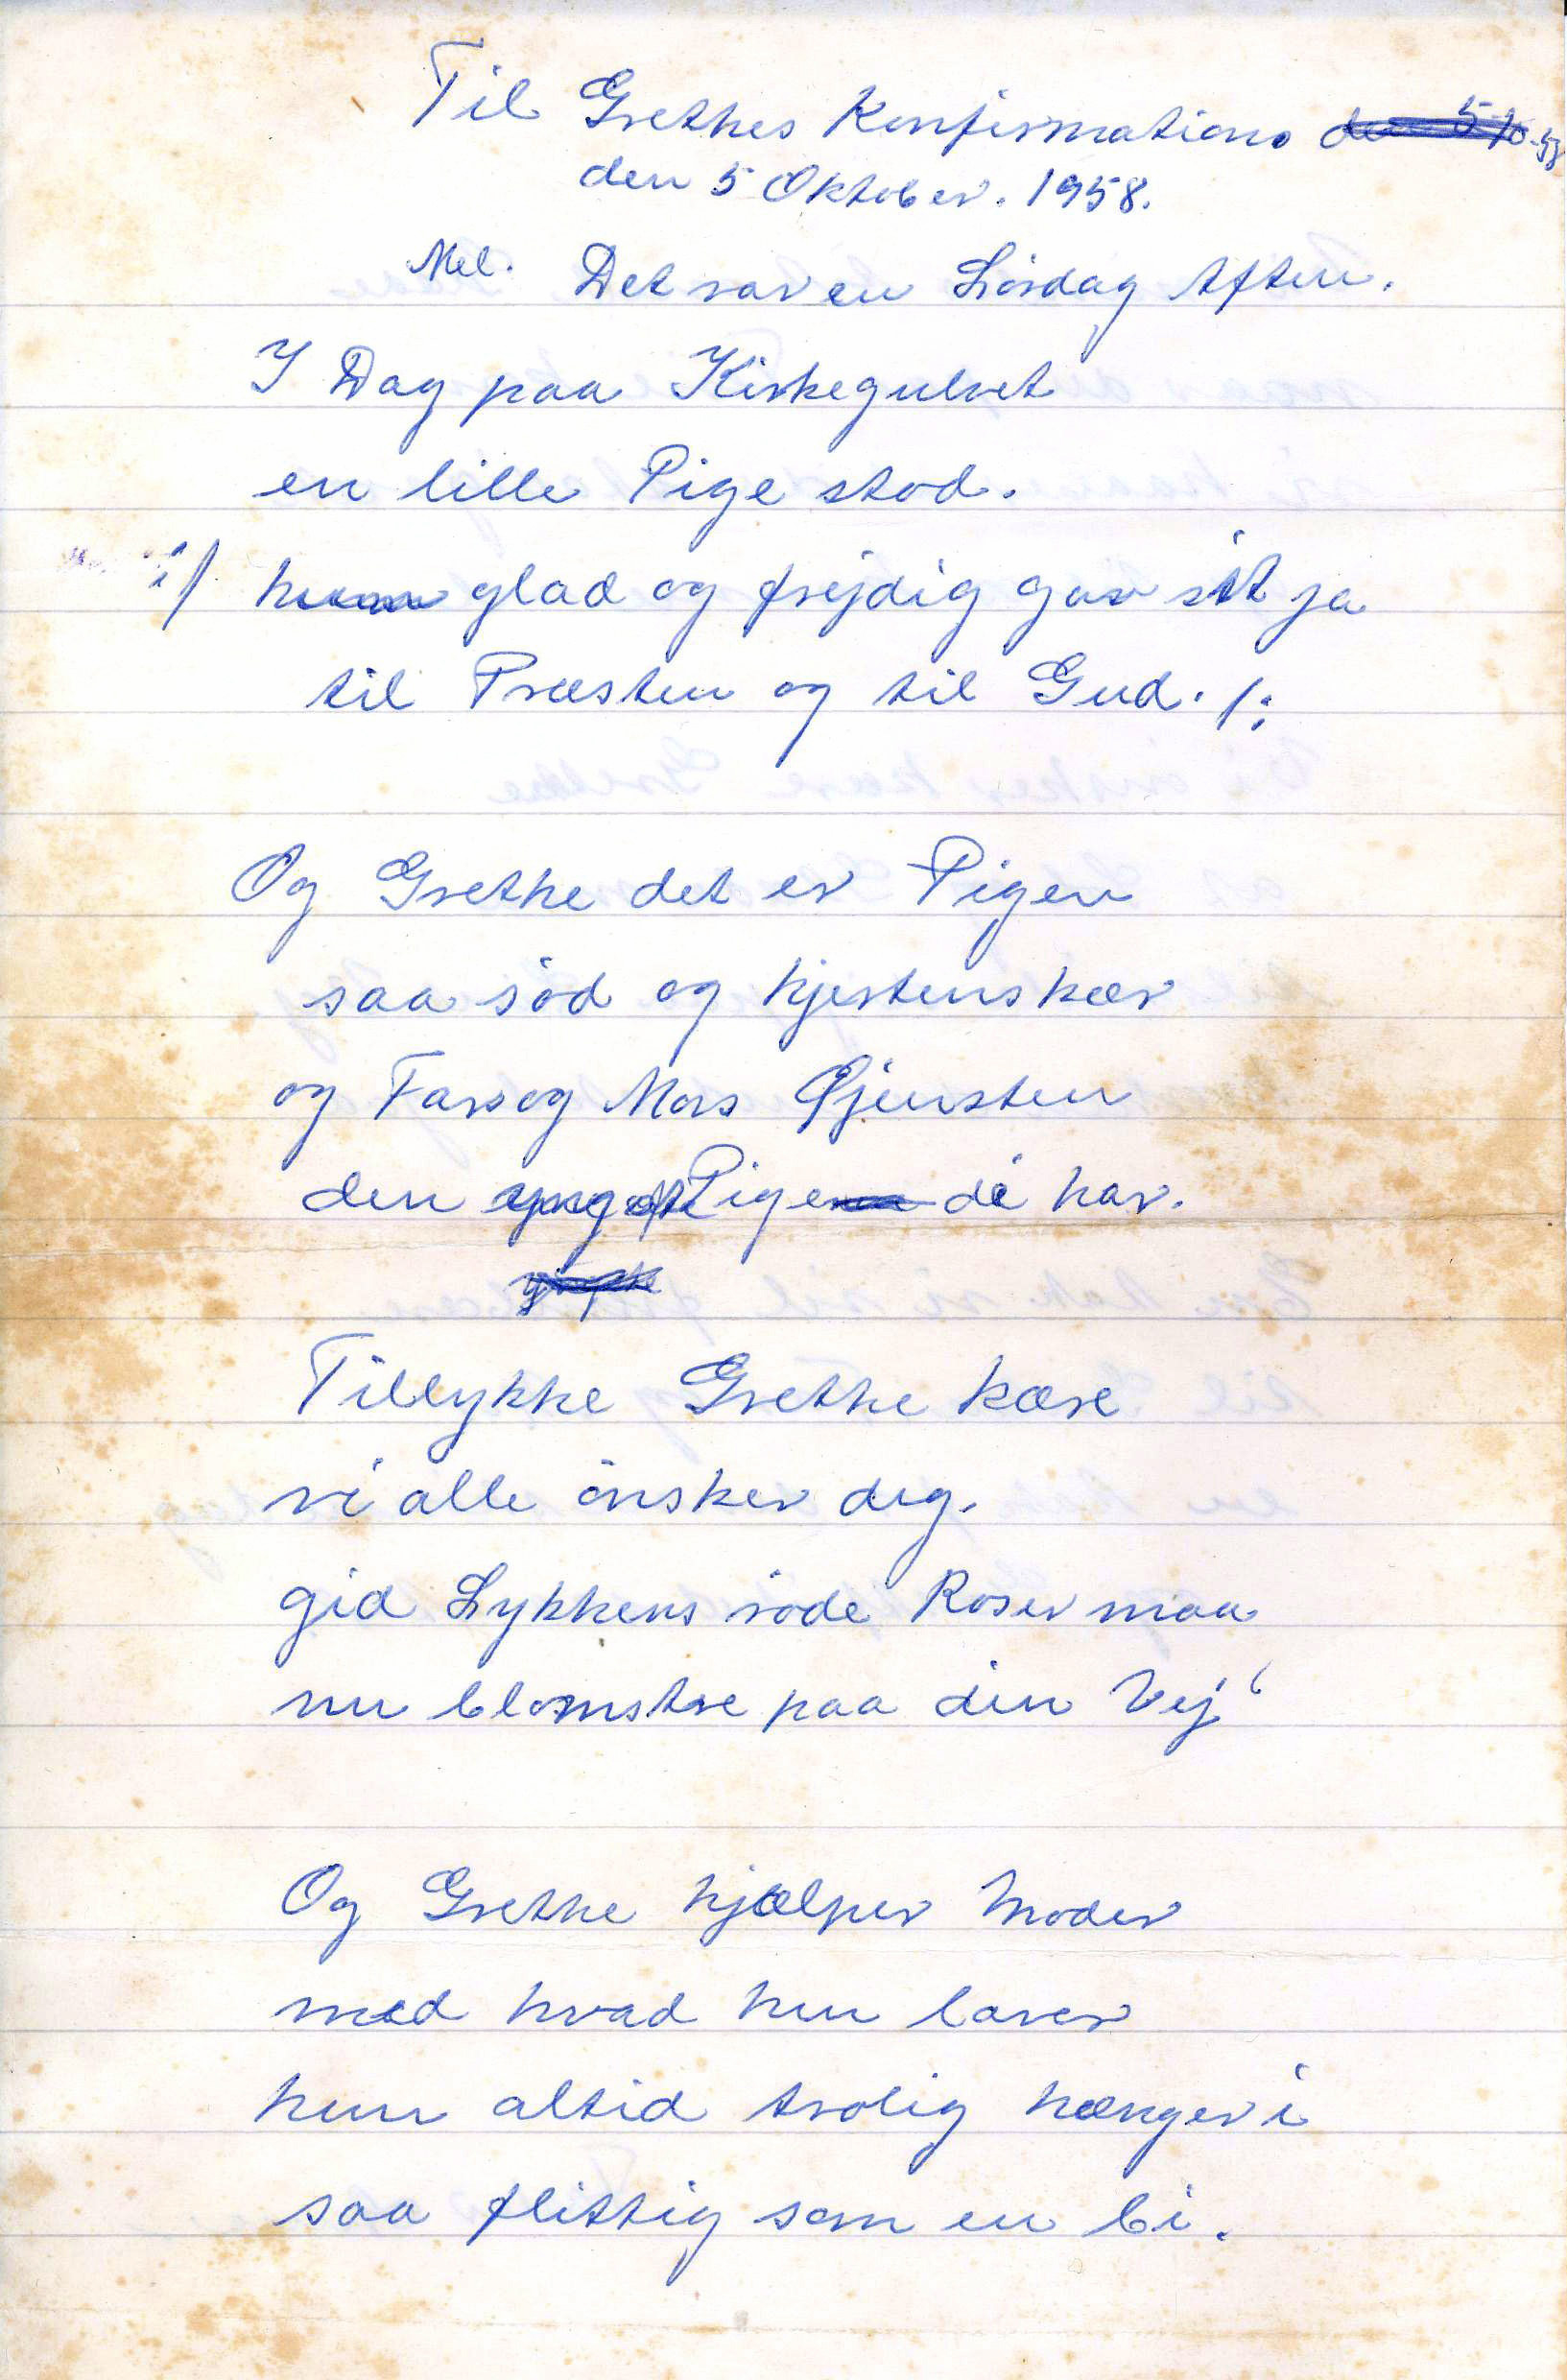 Til Grethes Konfirmation den 5-10-58
den 5 Oktober. 1958.
Mel. Det var en Lørdag Aften.
I Dag paa Kirkegulvet
en lille Pige stod.
:/ hun glad og frejdig gav sit ja
til Præsten og til Gud. /:
Og Grethe det er Pigen
saa sød og hjertenskær
og Fars og Mors Øjensten
den yngste Pige de har.
Tillykke Grethe kære
vi alle ønsker dig.
gid Lykkens røde Roser maa
nu blomstre paa din Vej
Og Grethe hjælper Moder
med hvad hun laver
hun altid trolig hænger i
saa flittig som en bi.